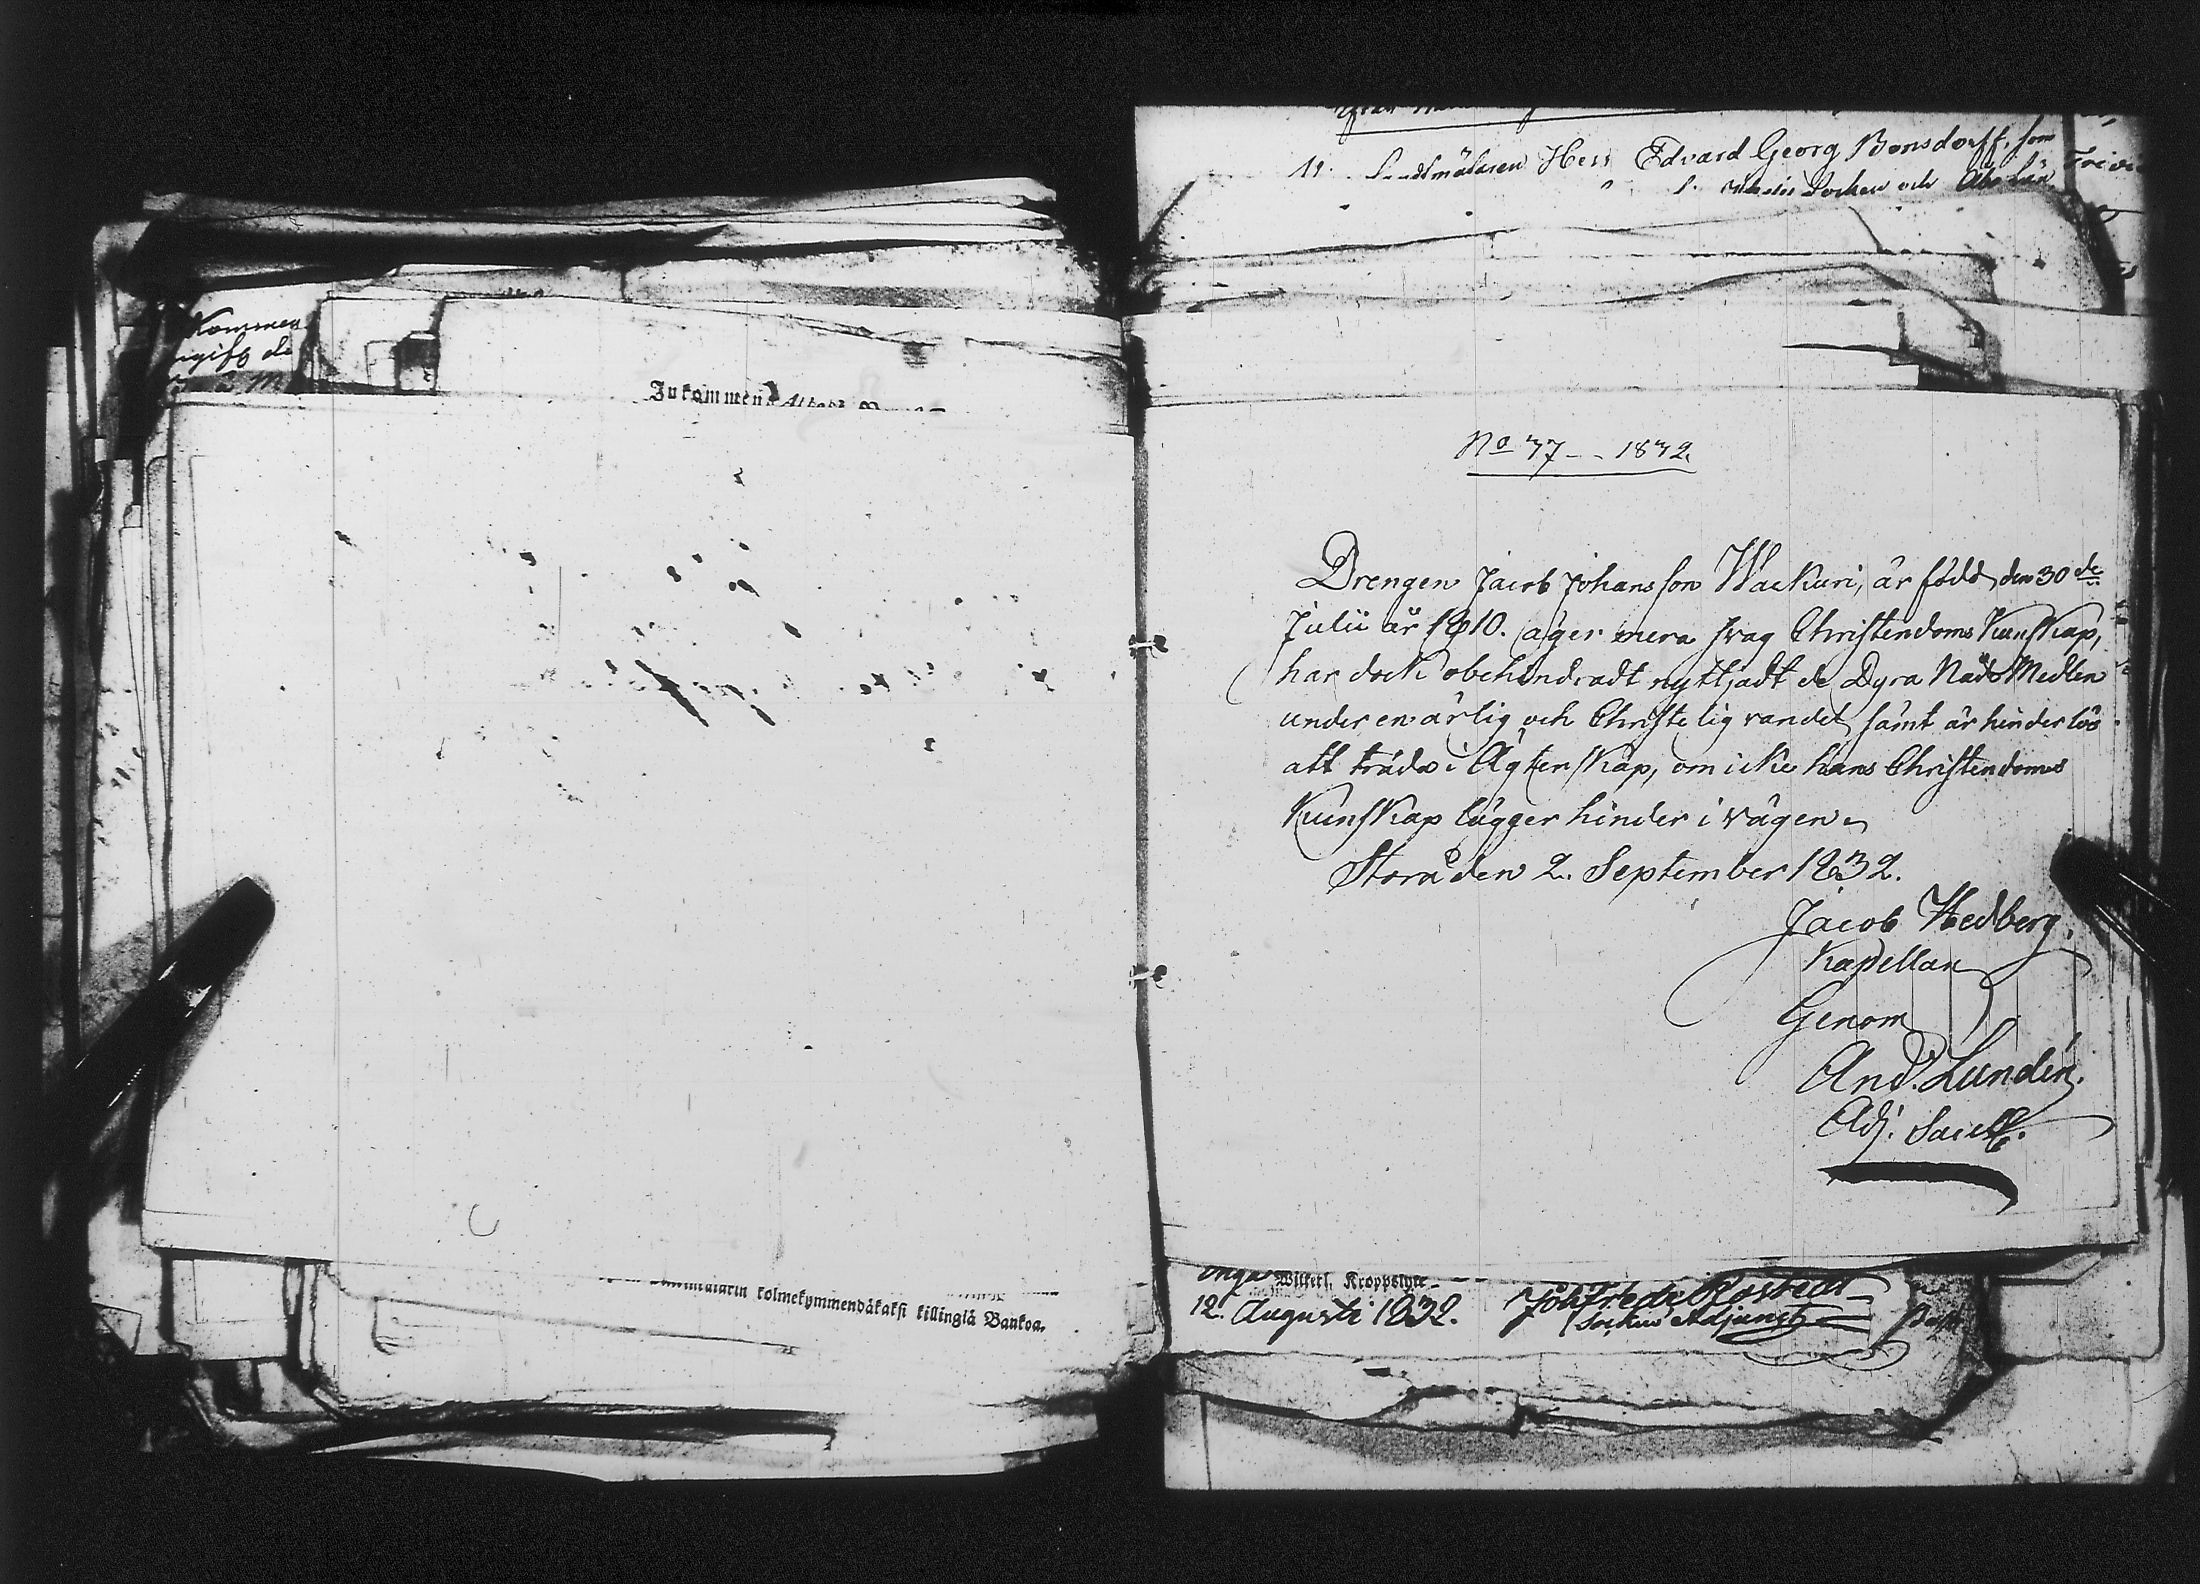 Kommen
Inkommen
kolmekymmendäkaksi killingiä Bankoa.
11. Landtmätaren Herr Edvard Georg Bonsdorff, som
Socken och Åbo Län
No 37 – – 1832.
Drengen Jacob Johansson Wackuri, är född den 30de
Julii år 1810. äger mera svag Christendoms Kunskap,
har dock obehindradt nyttjadt de Dyra Nådo Medlen
under en ärlig och Christelig vandel, samt är hinderlös
att träda i Ägtenskap, om icke hans Christendoms
Kunskap lägger hinder i vägen.
Storå den 2. September 1832.
Jacob Hedberg.
Kapellan
Genom
And. Lundén.
Adj. Sacell.
Wilkerl. Kroppslyte
12. Augusti 1832.
Sockne Adjunct